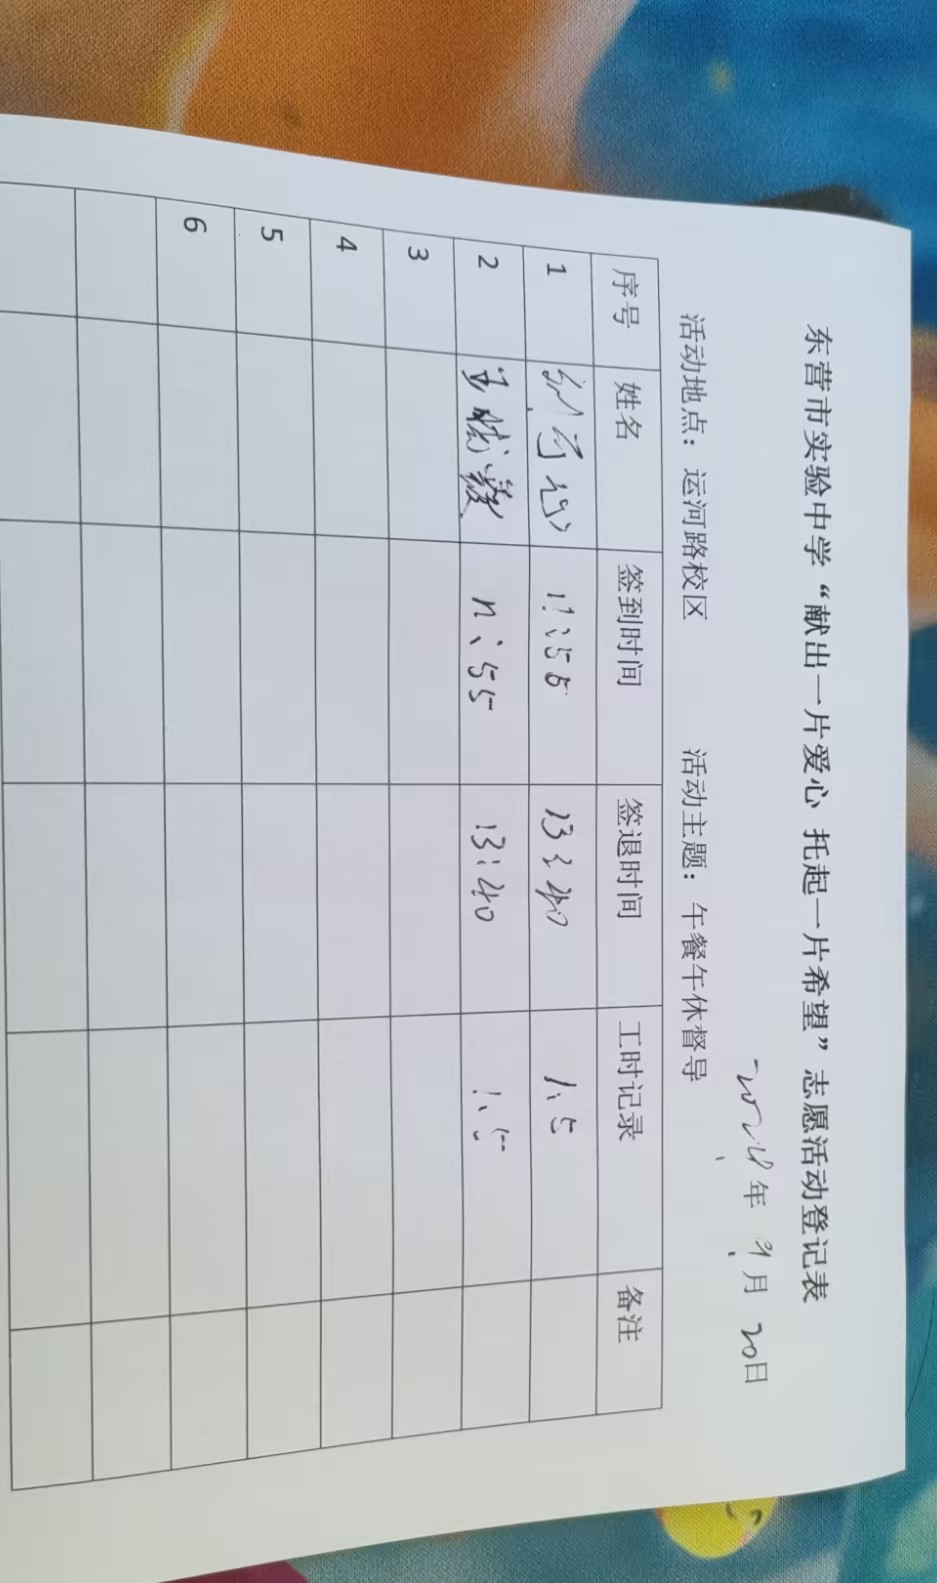 东营市实验中学“献出一片爱心 托起一片希望”志愿活动登记表
2024年 9月 20日
活动地点：运河路校区 活动主题：午餐午休督导
序号 姓名 签到时间 签退时间 工时记录 备注
1 11:55 13:40 1.5
2 王晓 11:55 13:40 1.5
3
4
5
6